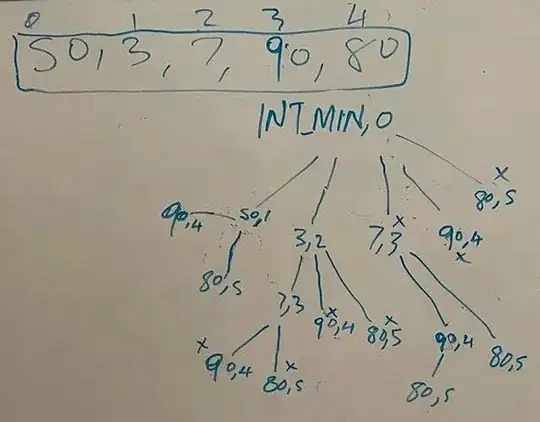 0 1 2 3 4
50, 3, 7, 90, 80
INT_MIN, 0
x
80,5
90,4 50,1
3,2 7,3 x 90,4
x
80,5
7,3 x 90,4 x 80,5
x 90,4 x 80,5
90,4 80,5
80,5